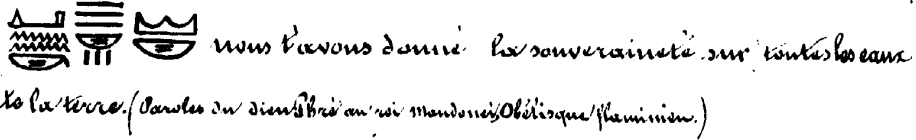 nous t'avons donné la souveraineté sur toutes les eaux
de la terre. (Paroles du dieu Phré au roi Mandoueï, Obélisque flaminien.)